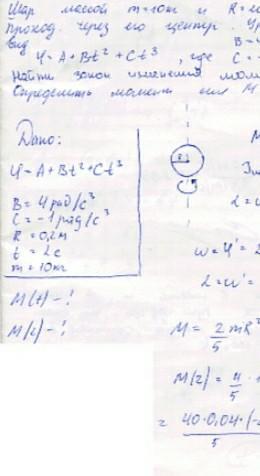 Шар массой m=10кг и R=20
проход. через его центр. Ур
вид
B=4
φ=A+Bt²+Ct³, где C=-
Найти закон изменения мом
Определить момент сил M
Дано:
φ=A+Bt²+Ct³
B=4рад/с³
C=-1рад/с³
R=0,2м
t=2с
m=10кг
M(t)-!
M(2)-!
R
M
ω=φ'=2
ε=ω'=
M=2/5 mR²
M(2)=4/5 ·
= 40·0,04·(-
5